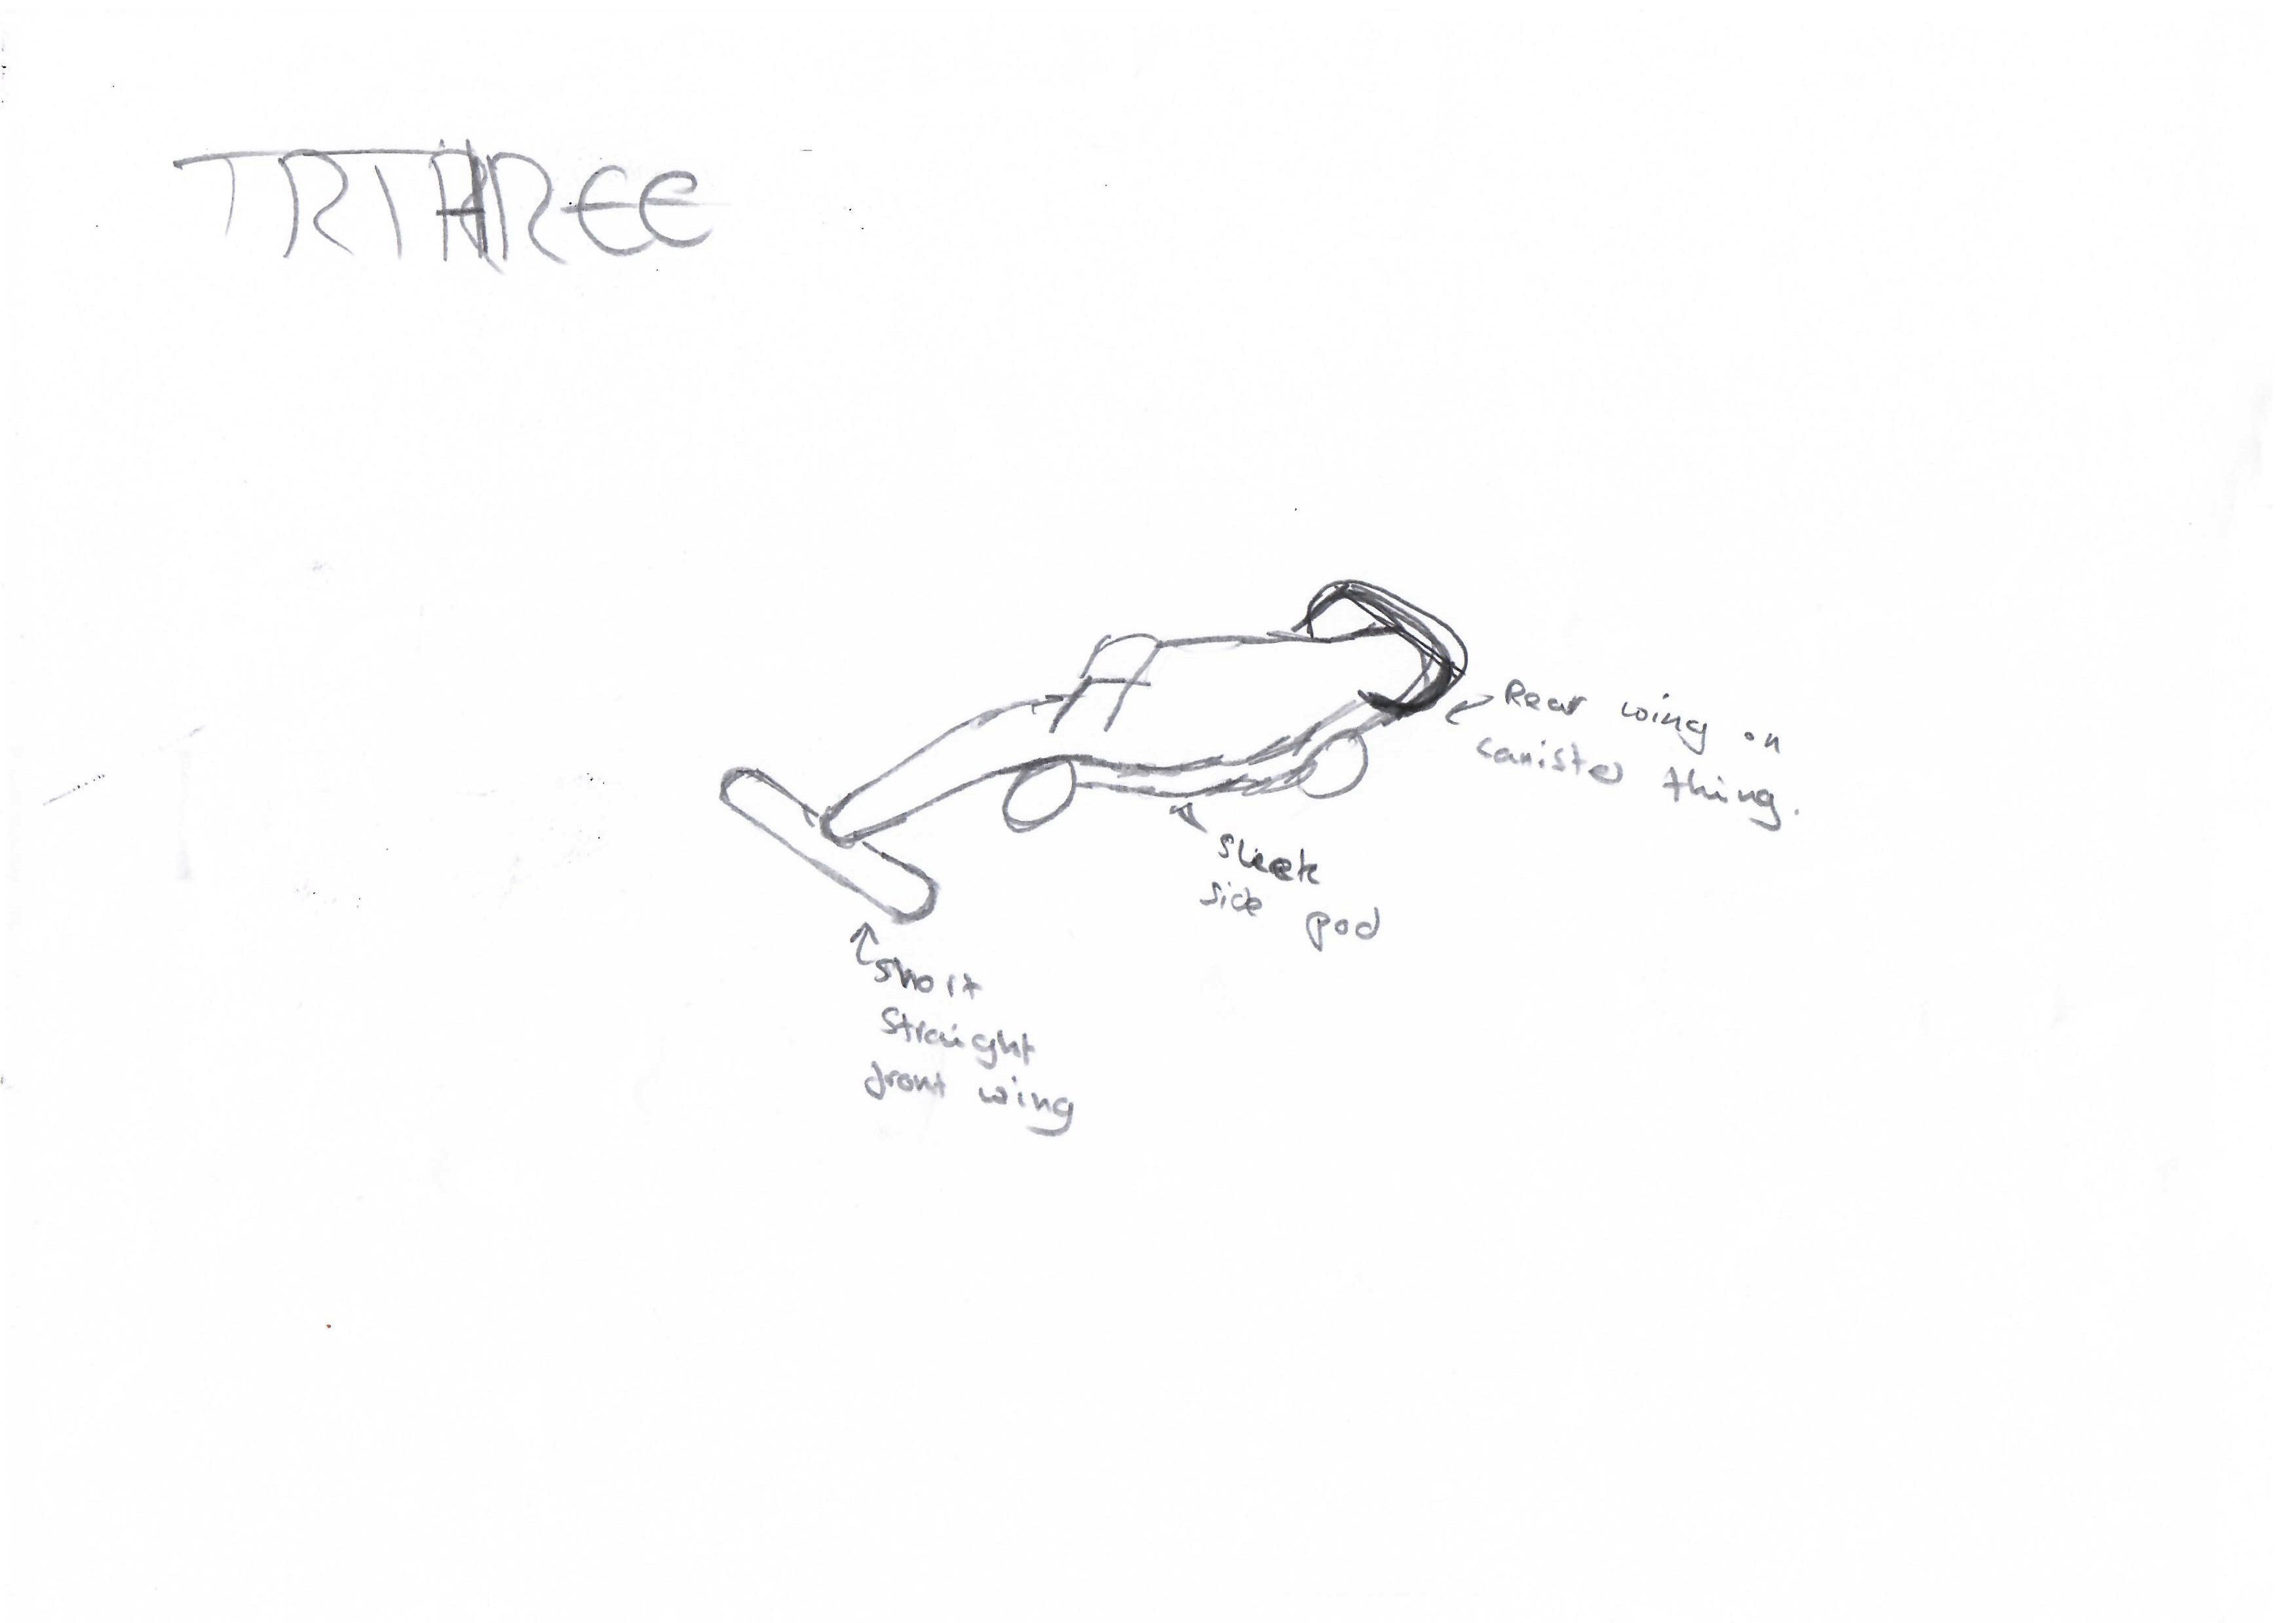 Rear wing on
canister thing.
sleek
side pod
short
straight
front wing